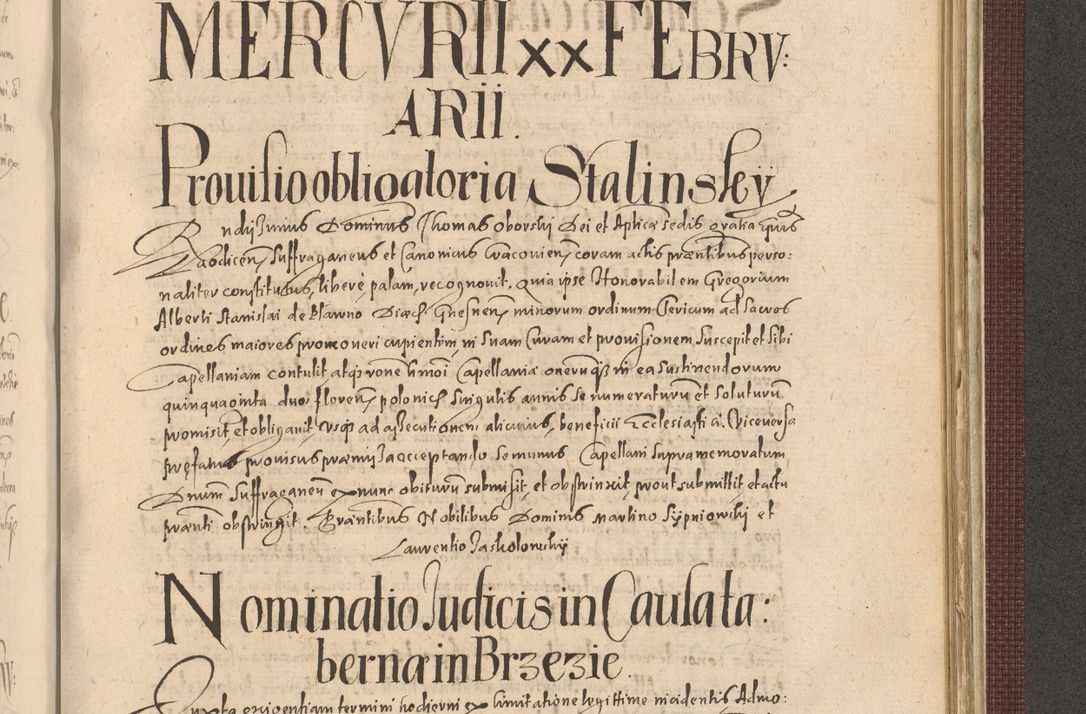 MERCVRII xx FEBRV:
ARII.
Prouisio obligatoria Stalinskÿ
Rndÿssimus Dominus Thomas Oborskÿ Dei et Apticæ sedis gratia Epus
Laodicen, Suffraganeus et Canonicus Cracouien, coram actis præntibus perso:
naliter constitutus, liberè palam, recognouit. Quia ipse Honorabilem Gregorium
Alberti Stanislai de Diæc Gnesnen, minorum ordinum Clericum ad Sacros
ordines maiores promoueri cupientem, in Suam Curam et prouisionem Suscepit et Sibi
Capellaniam contulit atq3 rone hmoi Capellaniæ onerumq3 in ea Sustinendorum
quinquaginta duos floren, polonic Singulis annis se numeraturum et Soluturum
promisit et obligauit, vsq3 ad assecutionem alicuius, beneficii Ecclesiastici. Viceuersa
præfatus prouisus præmissa acceptando se munus Capellani Supramemoratum
Dnum Suffraganeum ex nunc obiturum submisit, et obstrinxit, prout submittit et actu
prænti obstringit. Præntibus Nobilibus Dominis Martino Sypniowskÿ et
Laurentio Jaskolowskÿ
Nominatio Iudicis in Causa ta:
bernæ in Brzezie.
Iuxta exigentiam termini hodierni ex limitatione legittime incidentis Admo: